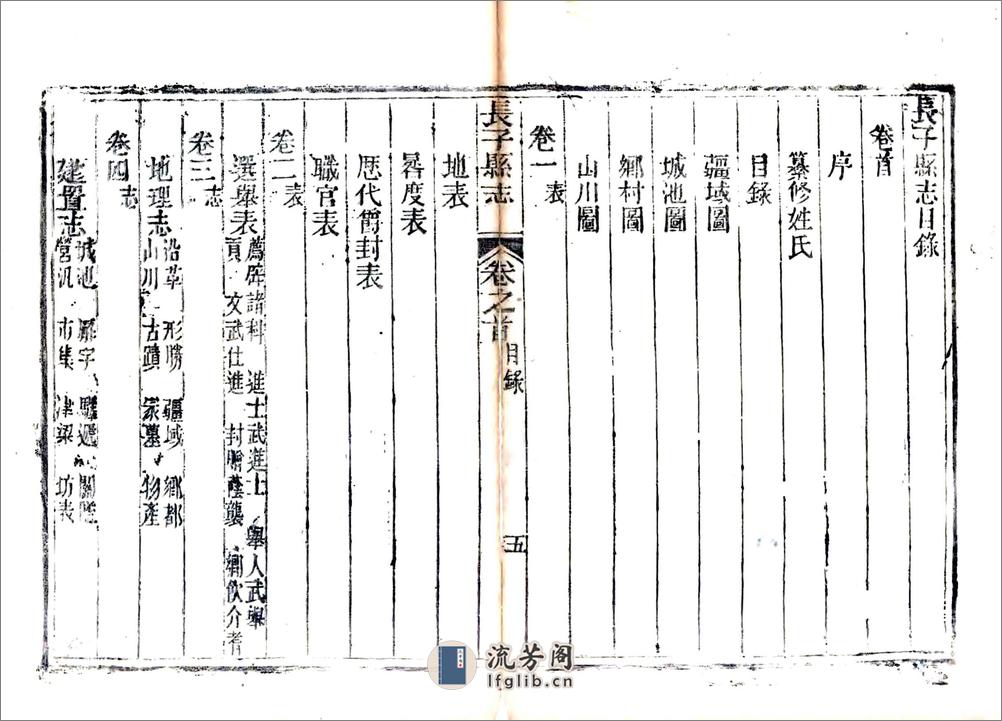 長子縣志目錄
卷首
序
纂修姓氏
目錄
疆域圖
城池圖
鄉村圖
山川圖
卷一 表
長子縣志 卷之首 目錄 五
地表
晷度表
歷代爵封表
職官表
卷二 表
選舉表 薦辟諸科 進士武進士 舉人武舉
貢 文武仕進 封贈蔭襲 鄉飲介耆
卷三 志
地理志 沿革 形勝 疆域 鄉都
山川 古蹟 冢墓 物產
卷四 志
建置志 城池 廨宇 驛遞 關隘
營汛 市集 津梁 坊表
流芳阁
lfglib.cn